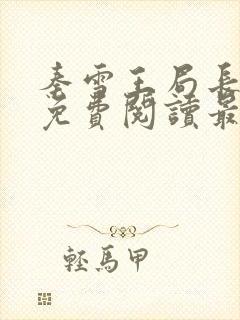 秦雪王局長
免費閱讀最
輕馬甲